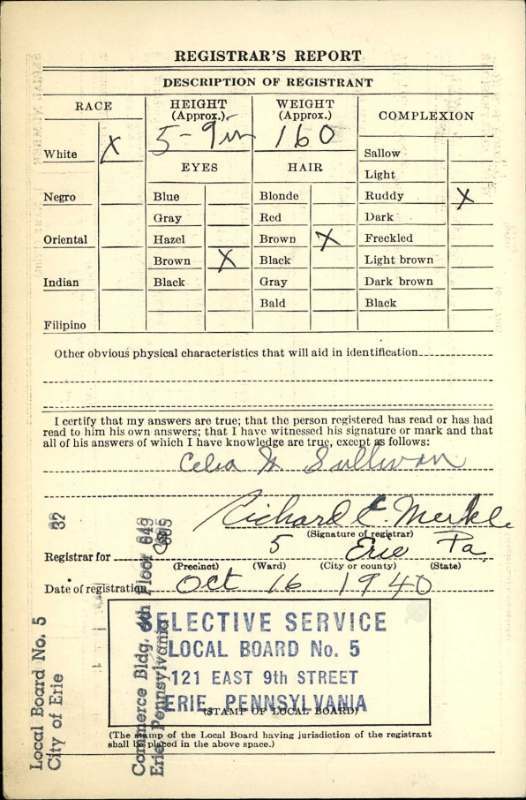 REGISTRAR'S REPORT
DESCRIPTION OF REGISTRANT
RACE HEIGHT (Approx.) WEIGHT (Approx.) COMPLEXION
5-9in 160
White X
EYES HAIR
Sallow
Light
Negro Blue Blonde Ruddy X
Gray Red Dark
Oriental Hazel Brown X Freckled
Brown X Black Light brown
Indian Black Gray Dark brown
Bald Black
Filipino
Other obvious physical characteristics that will aid in identification
I certify that my answers are true; that the person registered has read or has had
read to him his own answers; that I have witnessed his signature or mark and that
all of his answers of which I have knowledge are true, except as follows:
Celia G. Sullivan
Richard C. Merkle
(Signature of registrar)
Registrar for 5 Erie Pa
(Precinct) (Ward) (City or county) (State)
Date of registration Oct 16 1940
SELECTIVE SERVICE
LOCAL BOARD No. 5
121 EAST 9th STREET
ERIE, PENNSYLVANIA
(STAMP OF LOCAL BOARD)
(The stamp of the Local Board having jurisdiction of the registrant
shall be placed in the above space.)
32
Local Board No. 5
City of Erie
Commerce Bldg. 6th Floor
Erie, Pennsylvania